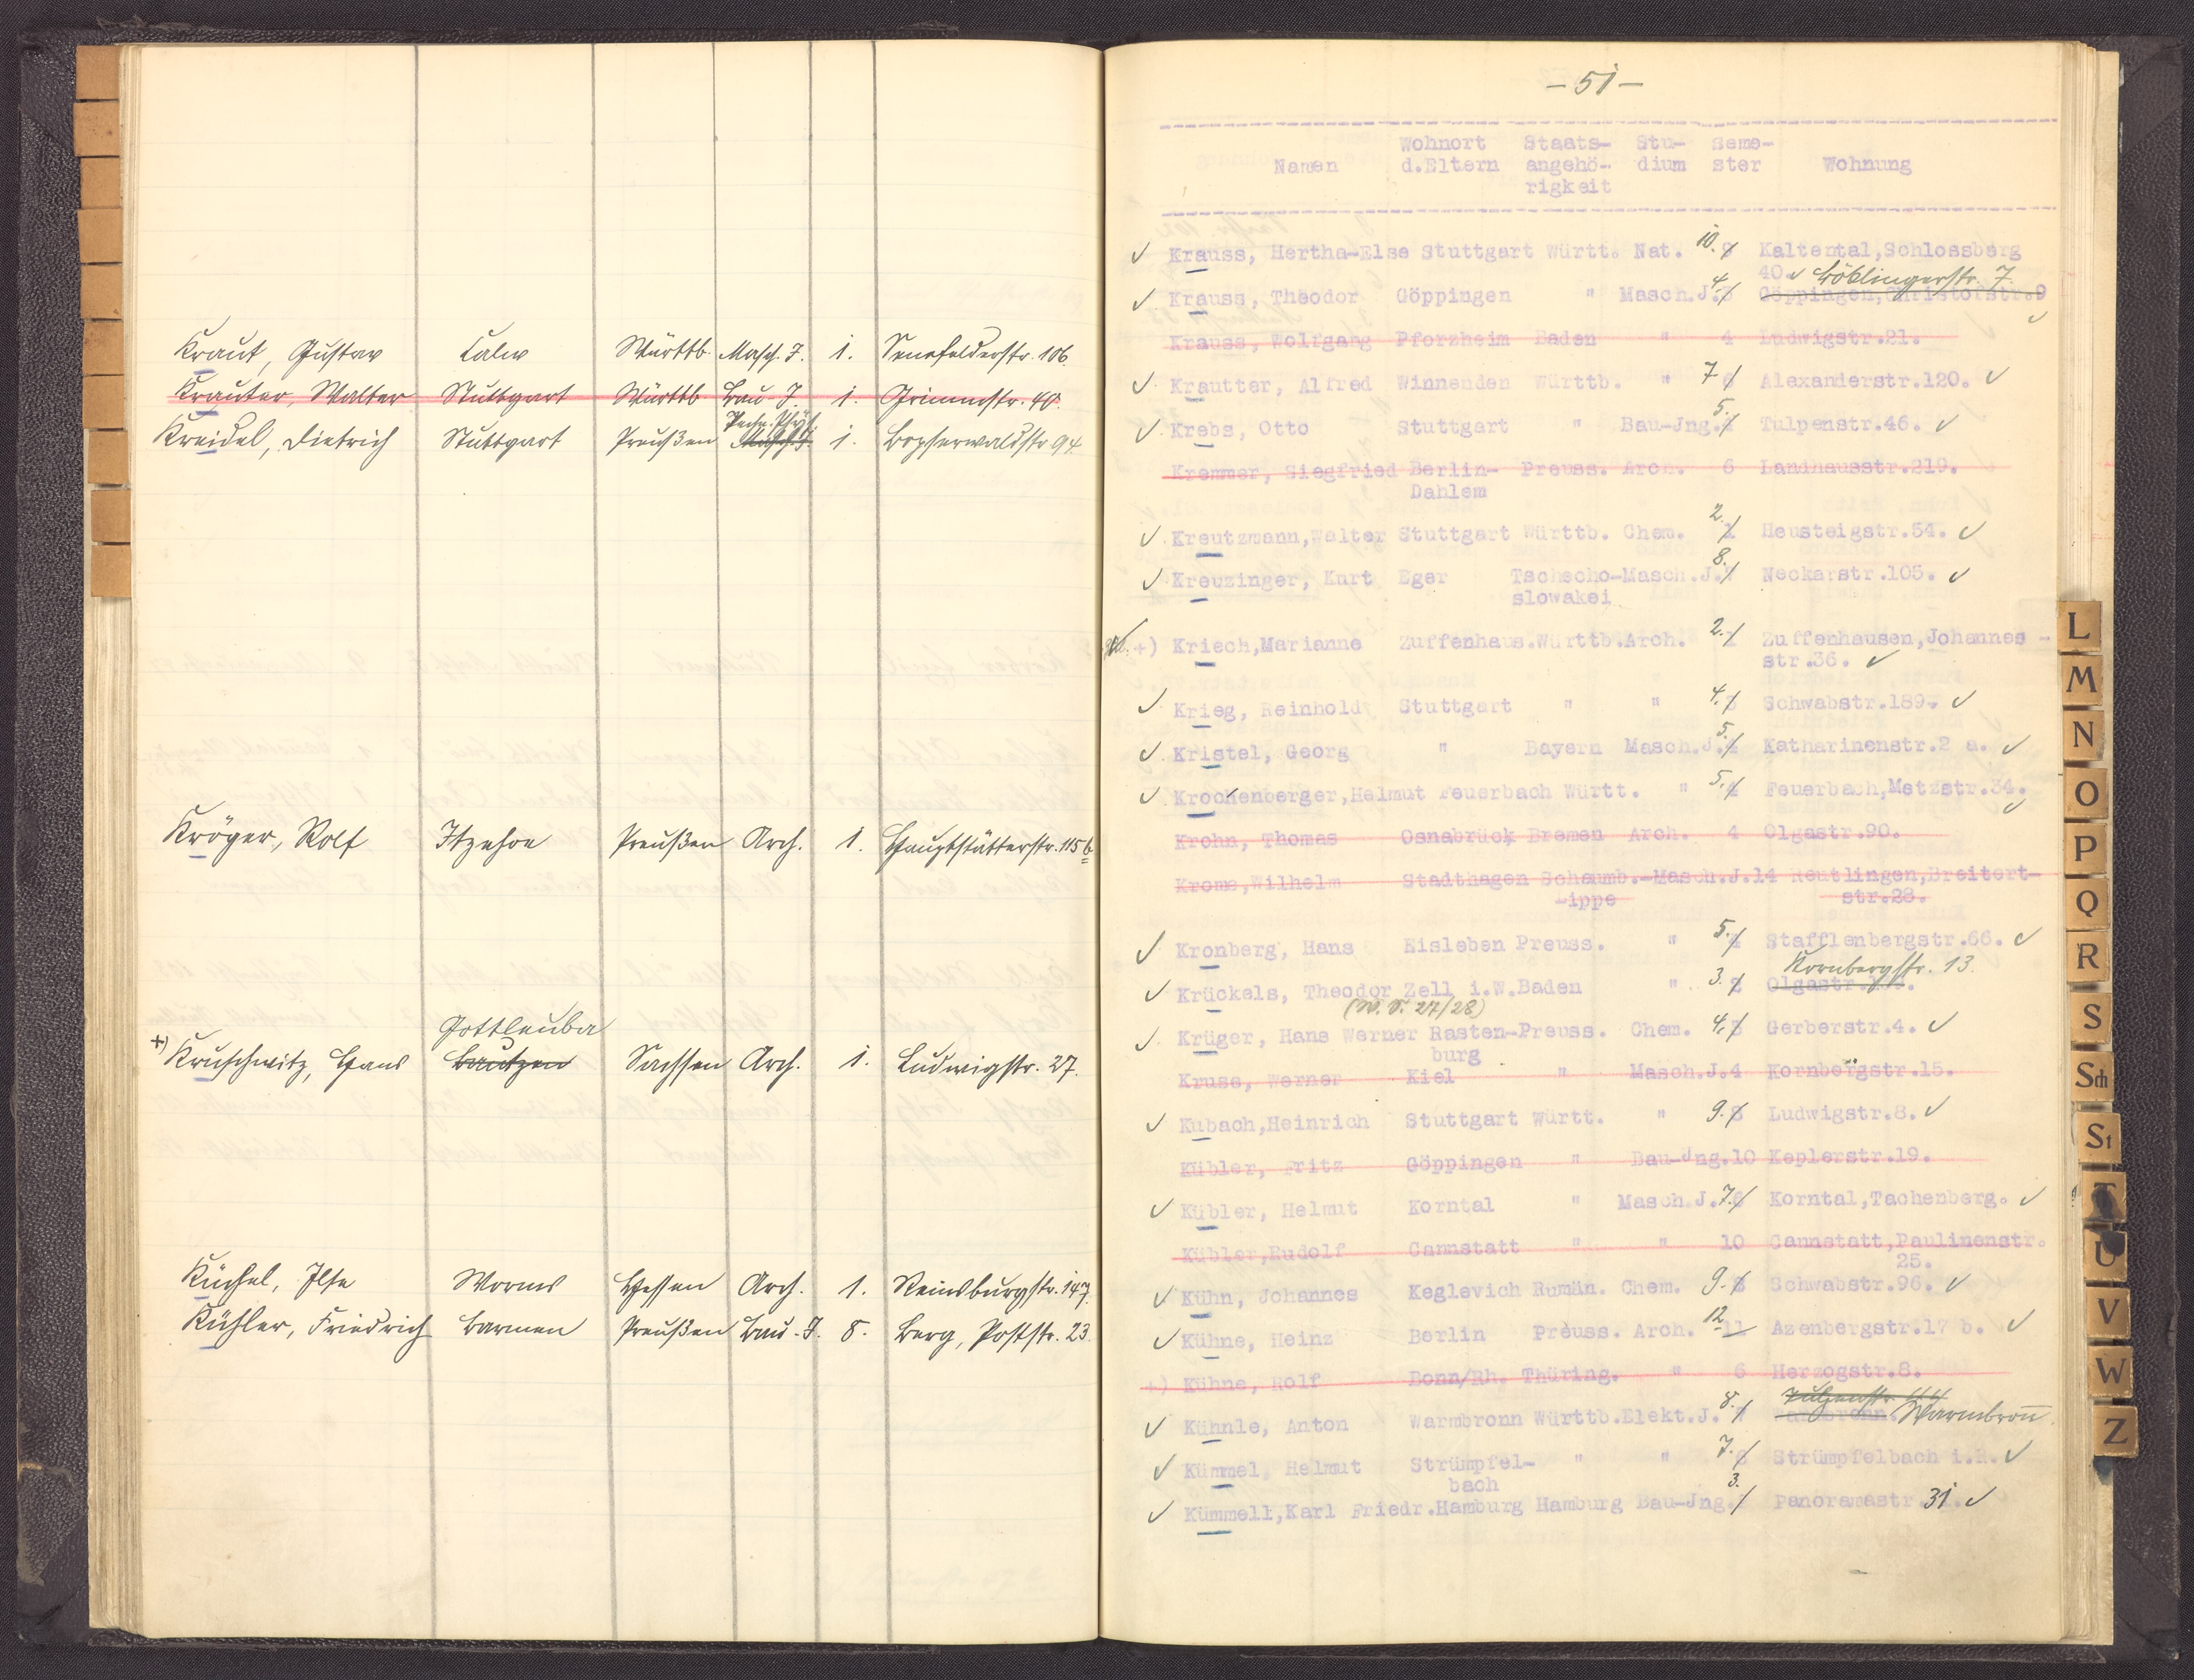 Kraut, Gustav Calw Württb. Masch. J. 1. Senefelderstr. 106.
Krauter, Walter Stuttgart Württb. Bau-J. 1. Grimmstr. 40.
Techn. Phys.
Kreidel, Dietrich Stuttgart Preußen Masch. J. 1. Bopserwaldstr 94
Kröger, Rolf Itzehoe Preußen Arch. 1. Hauptstätterstr. 115 b
Gottleuba
+) Kruschwitz, Hans Bautzen Sachsen Arch. 1. Ludwigstr. 27.
Küchel, Ilse Worms Hessen Arch. 1. Reinsburgstr. 147.
Kühler, Friedrich Barmen Preußen Bau-J. 8. Berg, Poststr. 23.
- 51 -
Wohnort Staats- Stu- Seme-
Namen d.Eltern angehö- dium ster Wohnung
rigkeit
✓ Krauss, Hertha-Else Stuttgart Württ. Nat. 10. 9 Kaltental,Schlossberg
40. ✓ Böblingerstr. 7.
✓ Krauss, Theodor Göppingen " Masch.J. 4. 3 Göppingen,Christofstr.9 ✓
Krauss, Wolfgang Pforzheim Baden " 4 Ludwigstr.21.
✓ Krautter, Alfred Winnenden Württb. " 7 6 Alexanderstr.120. ✓
✓ Krebs, Otto Stuttgart " Bau-Jng. 5. 4 Tulpenstr.46. ✓
Kremmer, Siegfried Berlin- Preuss. Arch. 6 Landhausstr.219.
Dahlem
✓ Kreutzmann,Walter Stuttgart Württb. Chem. 2. 1 Heusteigstr.54. ✓
✓ Kreuzinger, Kurt Eger Tschecho-Masch.J. 8. 7 Neckarstr.105. ✓
slowakei
+) Kriech,Marianne Zuffenhaus.Württb.Arch. 2. 1 Zuffenhausen,Johannes -
str.36. ✓
✓ Krieg, Reinhold Stuttgart " " 4. 3 Schwabstr.189. ✓
✓ Kristel, Georg " Bayern Masch.J. 5. 4 Katharinenstr.2 a. ✓
✓ Krockenberger,Helmut Feuerbach Württ. " 5. 4 Feuerbach,Metzstr.34. ✓
Krohn, Thomas Osnabrück Bremen Arch. 4 Olgastr.90.
Krome,Wilhelm Stadthagen Schaumb.-Masch.J.14 Reutlingen,Breitert-
-ippe str.28.
✓ Kronberg, Hans Eisleben Preuss. " 5. 4 Stafflenbergstr.66. ✓
Kornbergstr. 13.
✓ Krückels, Theodor Zell i.W.Baden " 3. 2 Olgastr.
(W. S. 27/28)
✓ Krüger, Hans Werner Rasten-Preuss. Chem. 4. 3 Gerberstr.4. ✓
burg
Kruse, Werner Kiel " Masch.J.4 Kornbergstr.15.
✓ Kübach,Heinrich Stuttgart Württ. " 9. 8 Ludwigstr.8. ✓
Kübler, Fritz Göppingen " Bau-Jng.10 Keplerstr.19.
✓ Kübler, Helmut Korntal " Masch.J. 7. 6 Korntal,Tachenberg. ✓
Kübler,Rudolf Cannstatt " " 10 Cannstatt,Paulinenstr.
25.
✓ Kühn, Johannes Keglevich Rumän. Chem. 9. 8 Schwabstr.96. ✓
✓ Kühne, Heinz Berlin Preuss. Arch. 12 11 Azenbergstr.17 b. ✓
+) Kühne, Rolf Bonn/Rh. Thüring. " 6 Herzogstr.8.
Tulpenstr. 44
✓ Kühnle, Anton Warmbronn Württb.Elekt.J. 8. 7 Warmbronn. Warmbroñ
✓ Kümmel, Helmut Strümpfel- " " 7. 6 Strümpfelbach i.R. ✓
bach
✓ Kümmell,Karl Friedr.Hamburg Hamburg Bau-Jng. 3. Panoramastr. 31 ✓
L
M
N
O
P
Q
R
S
Sch
St
T
U
V
W
Z